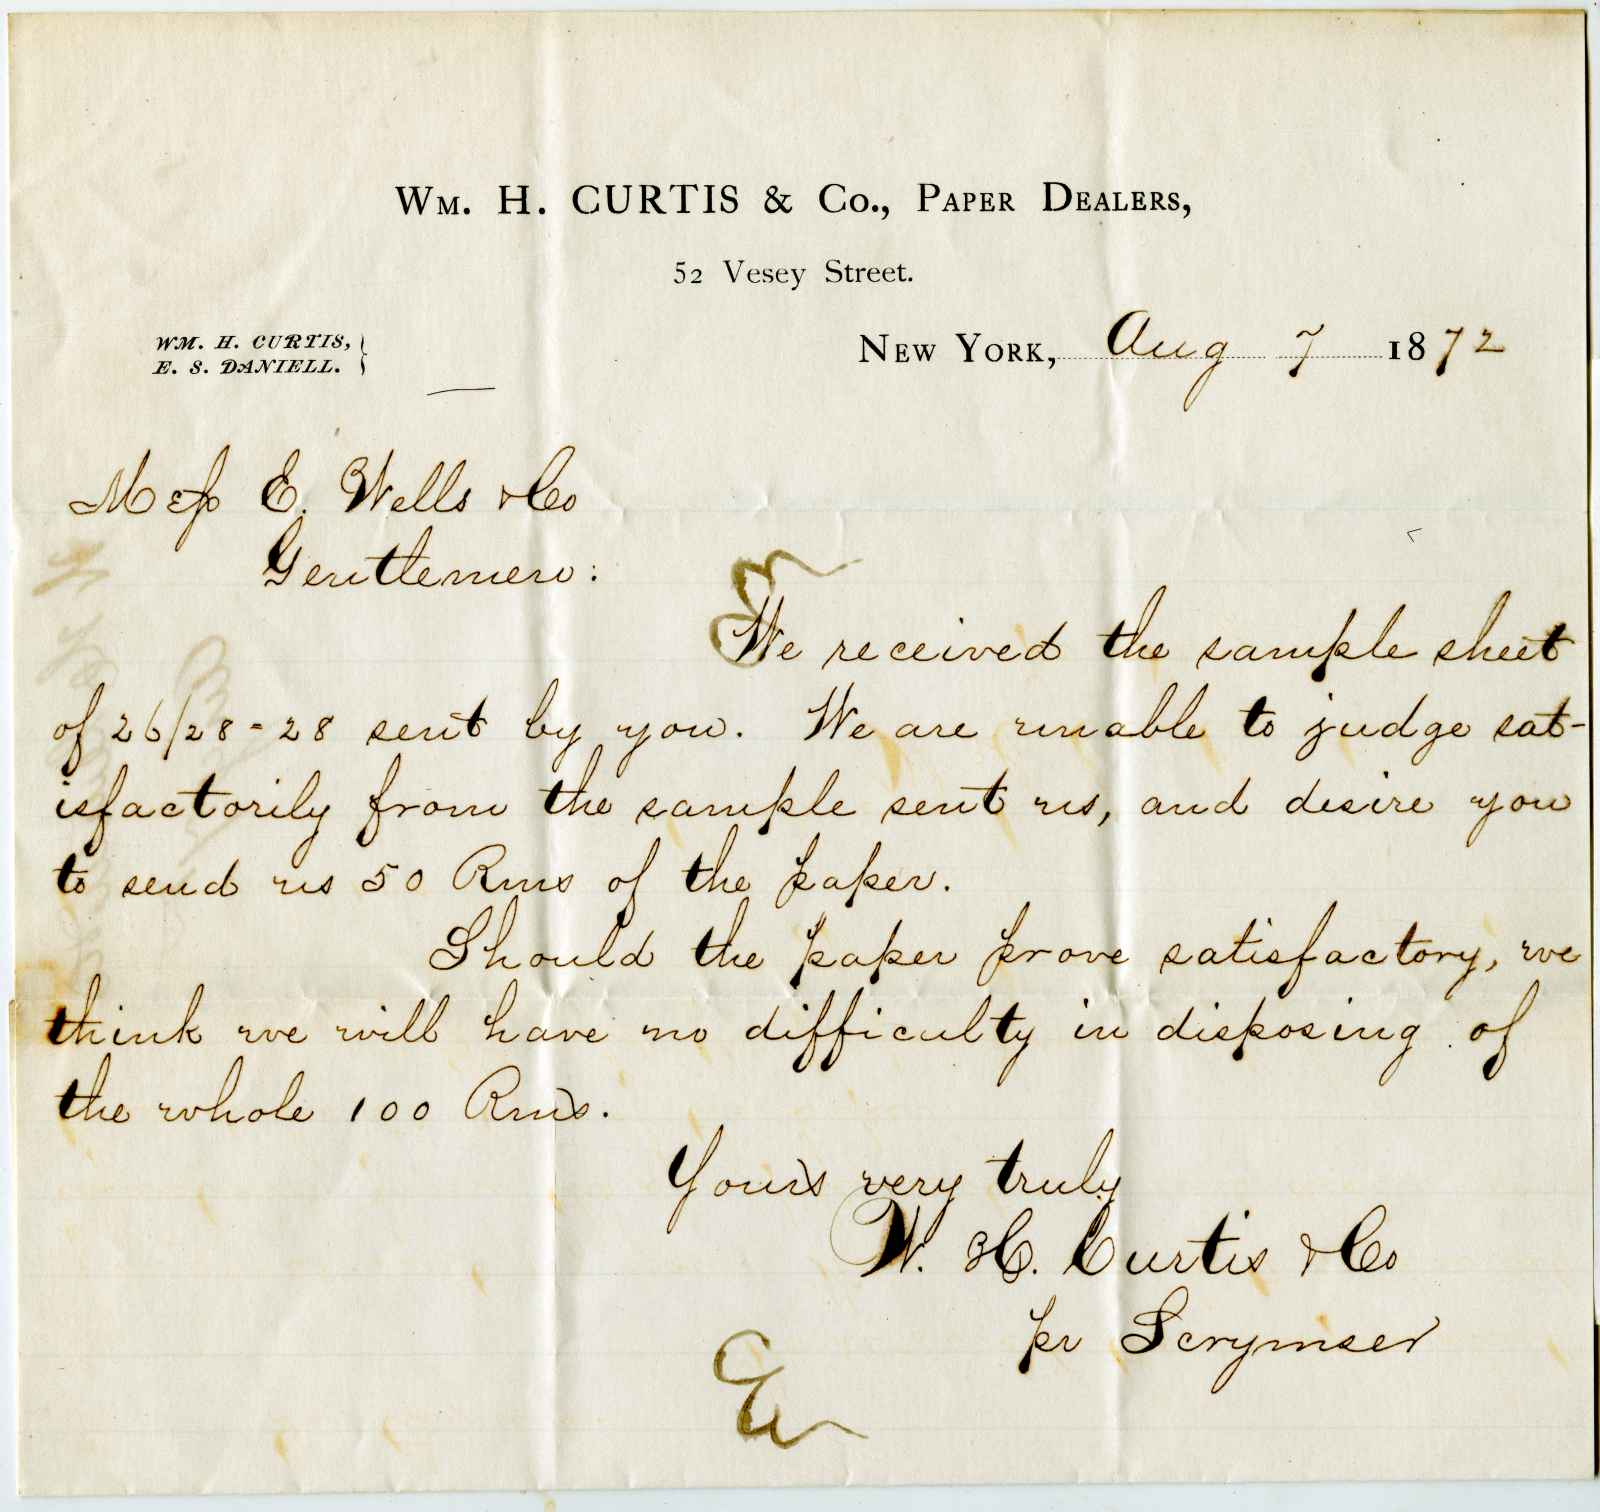 Wm. H. CURTIS & Co., Paper Dealers,
52 Vesey Street.
WM. H. CURTIS,
E. S. DANIELL.
New York, Aug 7 1872
Mess E. Wells & Co
Gentlemen:
We received the sample sheet
of 26/28 - 28 sent by you. We are unable to judge sat-
isfactorily from the sample sent us, and desire you
to send us 50 Rms of the paper.
Should the paper prove satisfactory, we
think we will have no difficulty in disposing of
the whole 100 Rms.
Yours very truly
W. H. Curtis & Co
pr Scrymser